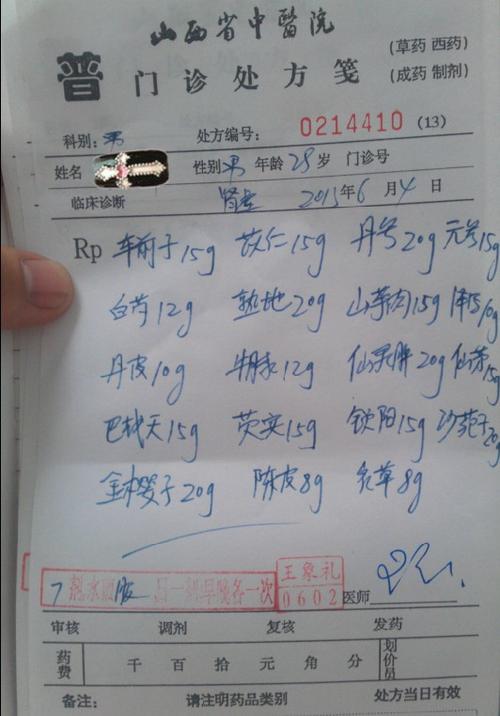 山西省中醫院
普 门诊处方笺 (草药 西药)
(成药 制剂)
科别: 男 处方编号: 0214410 (13)
姓名 性别 男 年龄 28岁 门诊号
临床诊断 肾虚 2015年6月4日
Rp 车前子15g 苡仁15g 丹参20g 元参15g
白芍12g 熟地20g 山萸肉15g 泽泻10g
丹皮10g 12g 仙灵脾20g 仙茅15g
巴戟天15g 芡实15g 15g 沙苑子20g
金樱子20g 陈皮8g 8g
7剂水煎服 日一剂早晚各一次 王象礼
0602 医师
审核 调剂 复核 发药
药费 千 百 拾 元 角 分 划价员
备注: 请注明药品类别 处方当日有效